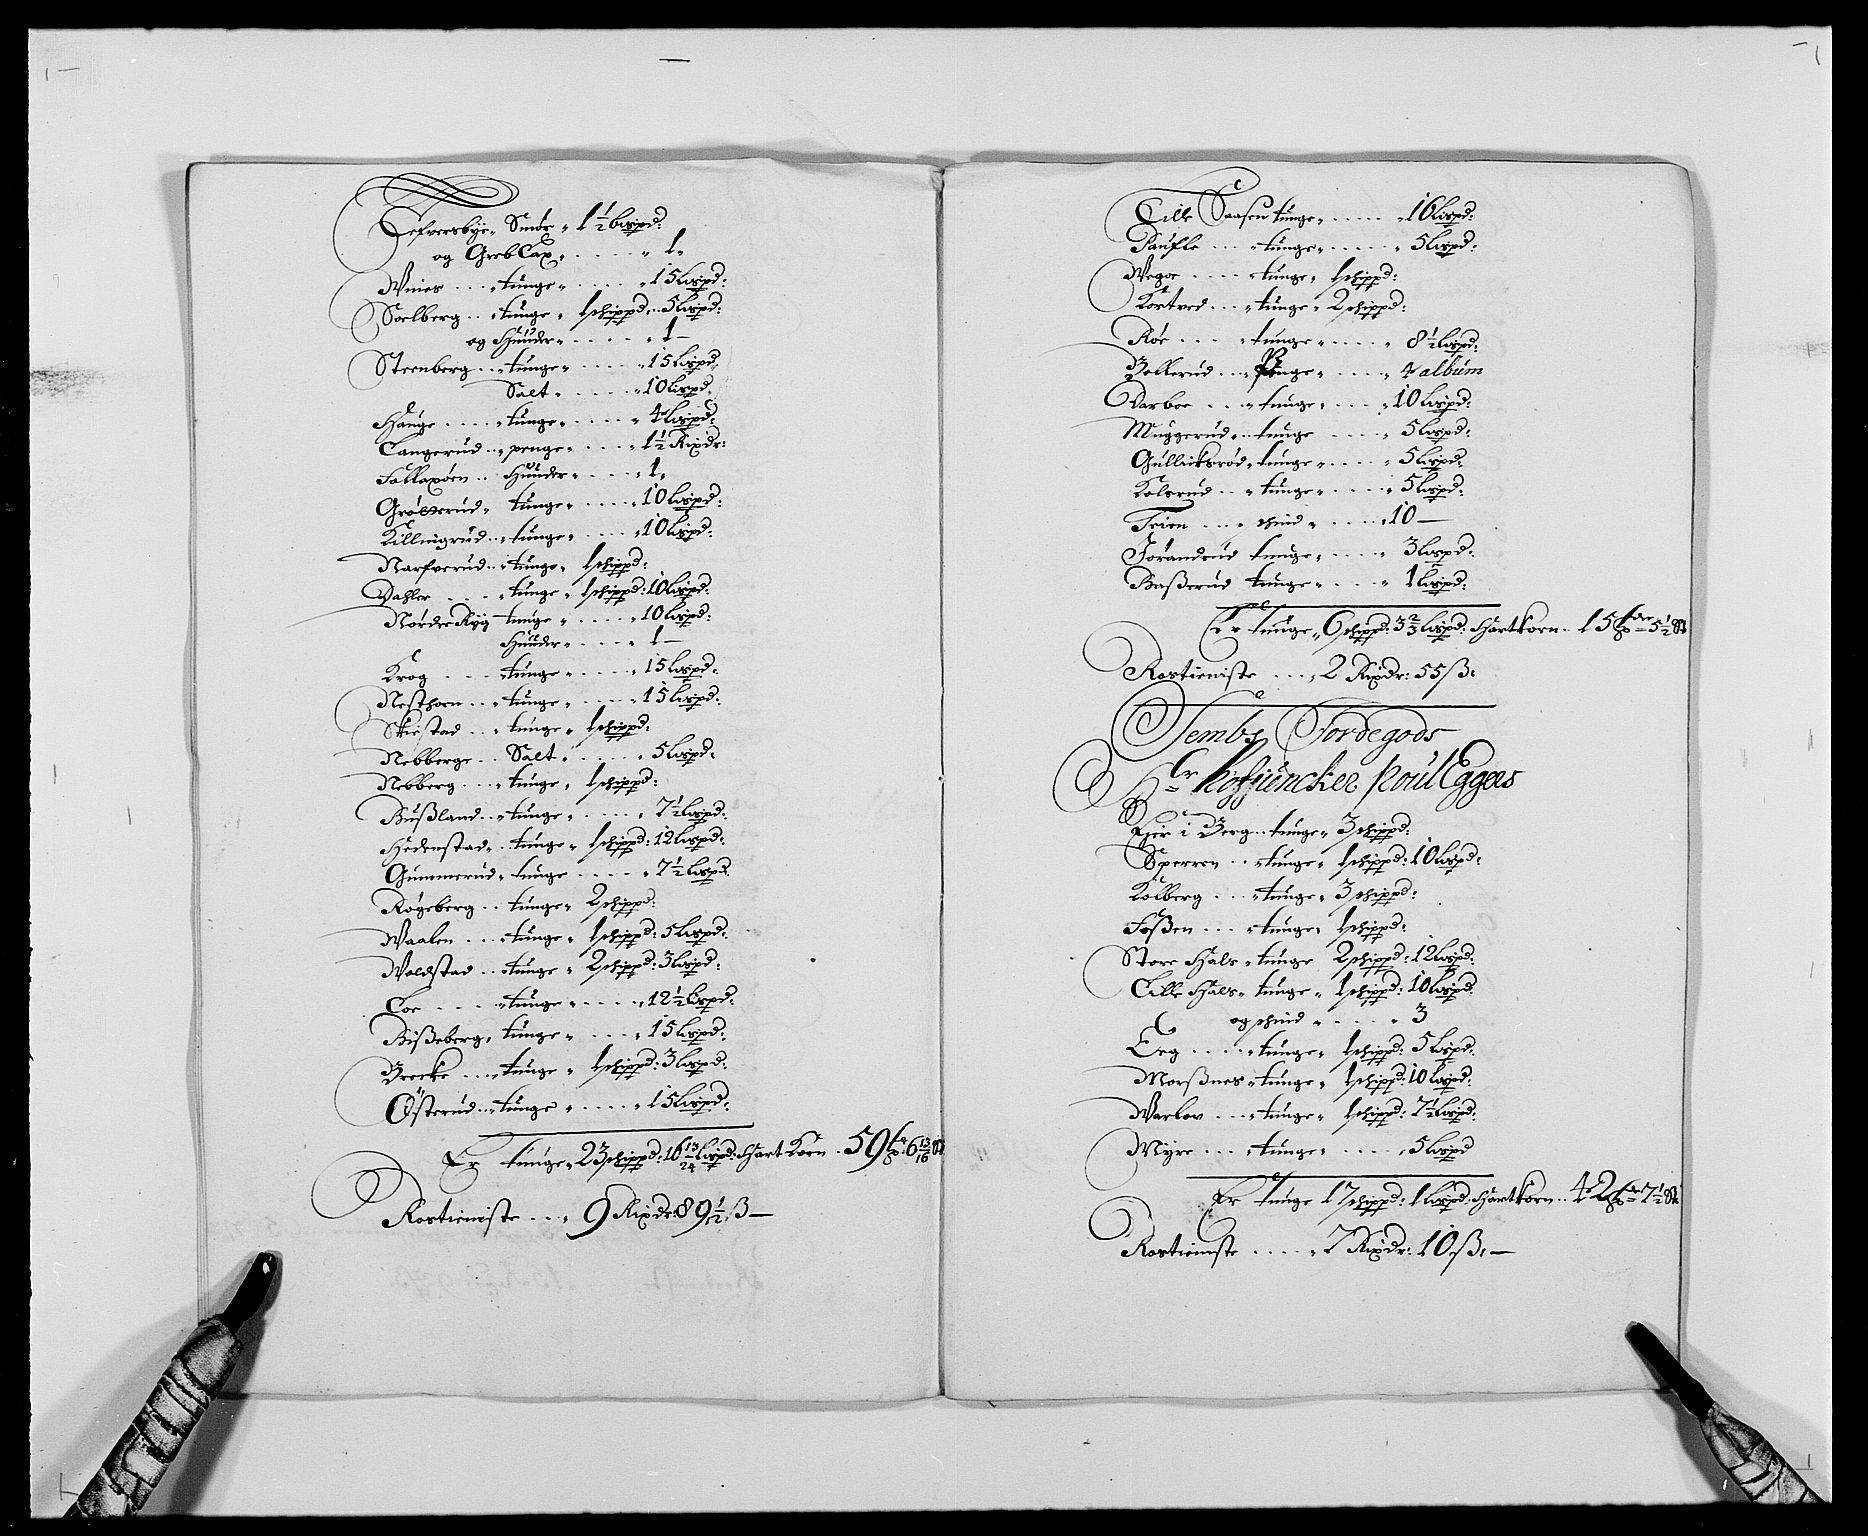 Lefversbÿe, Smör " 1½ Lißpd:
og GrobLax " . . . . " 1 "
Wiies . . . " tunge " . . . . " 15 Lißpd:
Soelberg . . " tunge " 1 schippd: 5 Lißpd:
og Huuder " . . . . " 1 —
Steenberg . . " tunge " . . . . " 15 Lißpd:
Salt " . . . . " 10 Lißpd:
Hauge . . . . " tunge " . . . . " 4 Lißpd:
Langerud . . " penge " . . . . " 1½ Rixdr:
Follaxöen . . Huuder " . . . . " 1 "
tunge " . . . . " 10 Lißpd:
Killingrud . . " tunge " . . . . " 10 Lißpd:
Narfverud . . " tunge " 1 schippd:
Dahler . . . . " tunge " 1 schippd: 10 Lißpd:
NordreRÿg tunge " . . . . " 10 Lißpd:
Huuder " . . . . " 1 —
Krog . . . . " tunge " . . . . " 15 Lißpd:
Nesthoen . . " tunge " . . . . " 15 Lißpd:
Skiestad . . " tunge " 1 schippd:
Nebberge . . Salt . . . . . " 5 Lißpd:
Nebberg . . . " tunge " 1 schippd:
Bußland . . " tunge " . . . . " 7½ Lißpd:
Hedenstad . . " tunge " 1 schippd: 12 Lißpd:
Gunnerud " tunge . . . . " 7½ Lißpd:
Rögeberg . . tunge " 2 schippd:
Waalen . . . " tunge " 1 schippd: 5 Lißpd:
Woldstad . . " tunge " 2 schippd: 3 Lißpd:
Loe . . . . " tunge " . . . . " 12½ Lißpd:
Bißeberg " tunge " . . . . " 15 Lißpd:
Brecke . . . " tunge " 1 schippd: 3 Lißpd:
Österud . . " tunge " . . . . " 15 Lißpd:
Er tunge " 23 schippd: 16 13/24 Lißpd: HartKorn . . 59 6 13/16
Rostieniste . . . " 9 Rixdr: 89½ ß —
Lille Saasen tunge " . . . . " 16 Lißpd:
Paufle . . . " tunge " . . . . " 5 Lißpd:
Wegoe . . . . " tunge " 1 schippd:
Kortved . . . " tunge " 2 schippd:
Röe . . . . " tunge " . . . . " 8½ Lißpd:
Bollerud . . . " Penge " . . . . " 4 album
Darboe . . . " tunge " . . . . " 10 Lißpd:
Muggerud . . tunge . . . . " 5 Lißpd:
Gullicksröd " tunge " . . . . " 5 Lißpd:
Kolsrud . . " tunge " . . . . " 5 Lißpd:
Teien . . . . " schind " . . . . " 10 —
Jörandrud tunge " . . . . " 3 Lißpd:
Baßerud tunge " . . . . " 1 Lißpd:
Er tunge " 6 schippd: 3⅔ Lißpd: Hartkorn . . 15 5½
Rostieniste . . . " 2 Rixdr: 55 ß:
Sembs Jordegods
Hr Hoffjuncker Poul Eggers
Eger i Berg . . tunge " 3 schippd:
Sperren . . " tunge " 1 schippd: 10 Lißpd:
Kolberg . . . " tunge " 3 schippd:
Foßen . . . " tunge " 1 schippd:
Store Hals " tunge 2 schippd: 12 Lißpd:
Lille Hals " tunge " 1 schippd: 10 Lißpd:
og schind " . . . . " 3
Eeg . . . . " tunge " 1 schippd: 5 Lißpd:
Morßnes " tunge " 1 schippd: 10 Lißpd:
Warlov . . . " tunge " 1 schippd: 7½ Lißpd:
Mÿre . . . . " tunge " . . . . " 5 Lißpd
Er tunge 17 schippd: 1 Lißpd: Hartkorn . . 42 7½
Rostieniste . . . . " 7 Rixdr: 10 ß: —